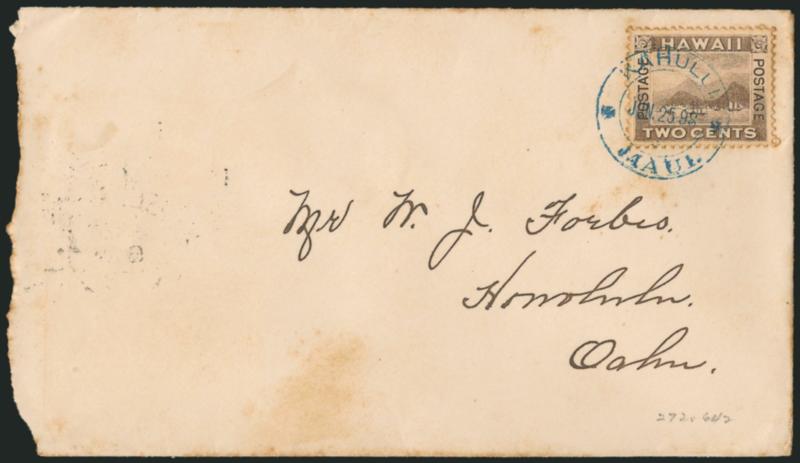 HAWAII
POSTAGE
POSTAGE
TWO CENTS
KAHULUI
JAN. 25 98
MAUI.
Mr W. J. Forbes.
Honolulu.
Oahu.
272.642